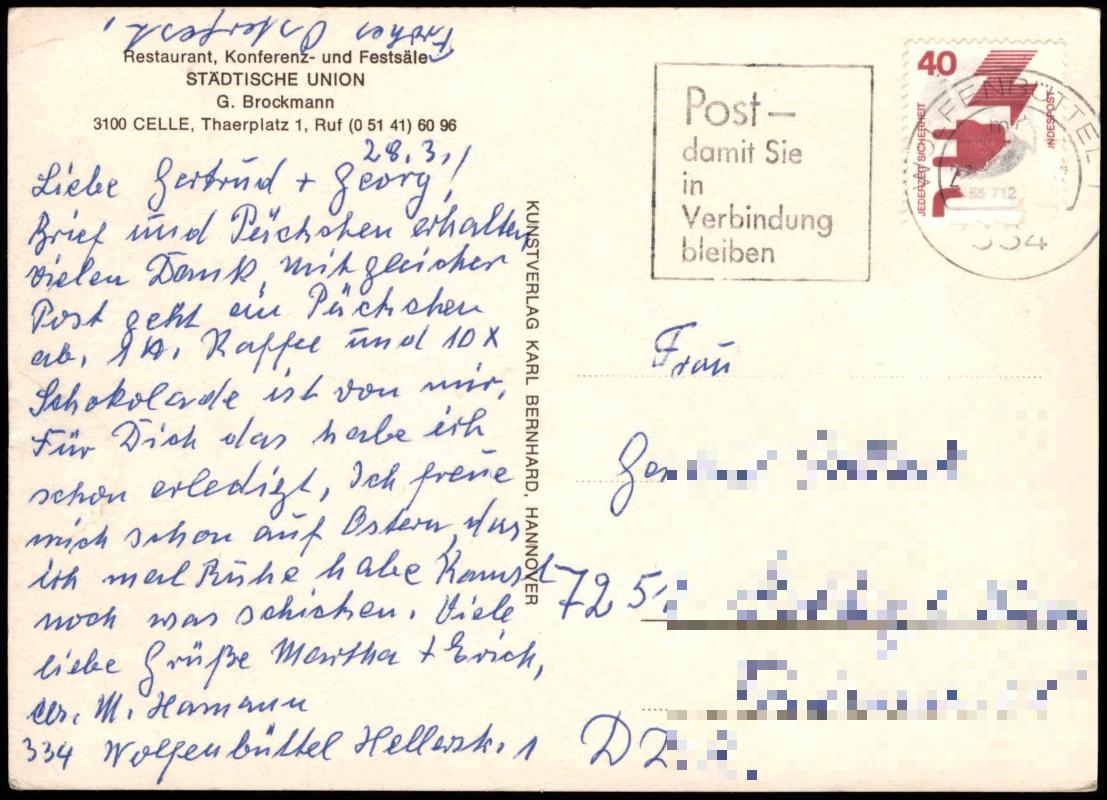 Frohes Osterfest,
Restaurant, Konferenz- und Festsäle
STÄDTISCHE UNION
G. Brockmann
3100 CELLE, Thaerplatz 1, Ruf (0 51 41) 60 96
28.3.
Liebe Gertrud + Georg!
Brief und Päckchen erhalten
vielen Dank, mit gleicher
Post geht ein Päckchen
ab. 1 Kaffee und 10 x
Schokolade ist von mir,
Für Dich das habe ich
schon erledigt, Ich freue
mich schon auf Ostern, das
ich mal Ruhe habe Kannst
noch was schicken. Viele
liebe Grüße Martha + Erich,
M. Hamann
334 Wolfenbüttel Hellerstr. 1
KUNSTVERLAG KARL BERNHARD, HANNOVER
Post –
damit Sie
in
Verbindung
bleiben
40
JEDERZEIT SICHERHEIT
WOLFENBÜTTEL 1
334
Frau
725